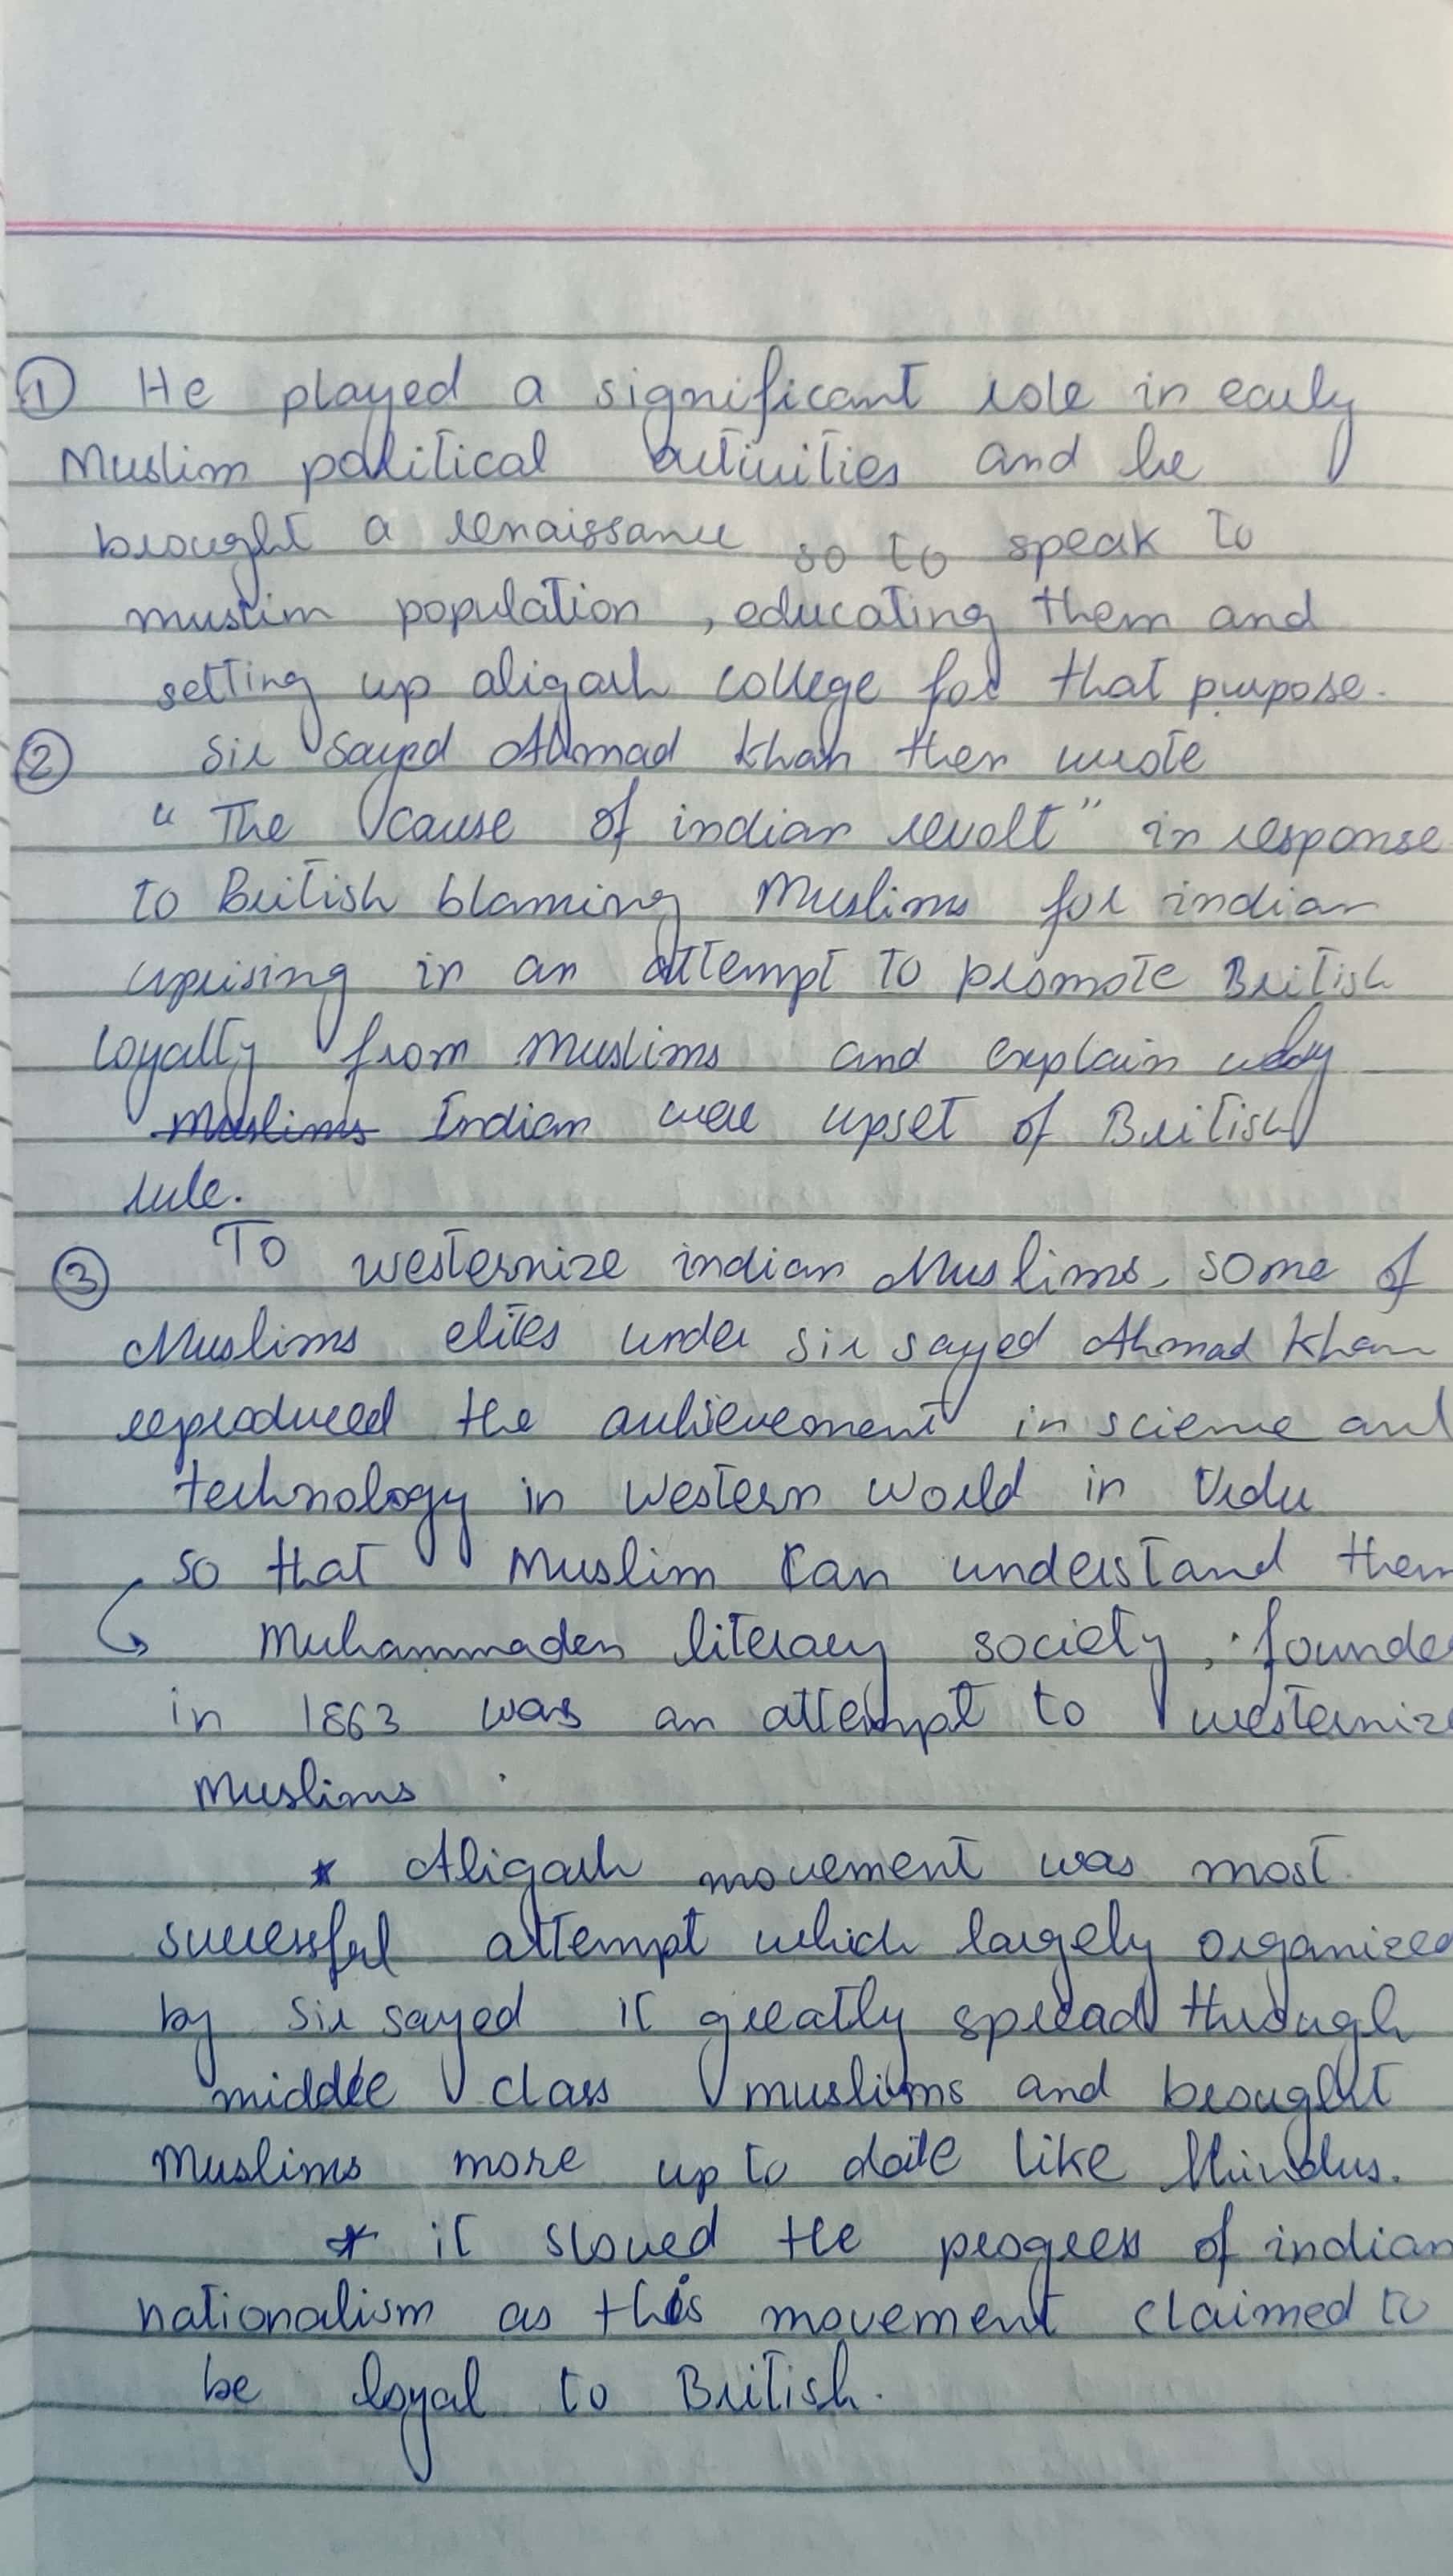 ① He played a significant role in early
Muslim political activities and he
brought a renaissance so to speak to
muslim population, educating them and
setting up aligarh college for that purpose.
② Sir Sayed Ahmad Khan then wrote
"The cause of indian revolt" in response
to British blaming Muslims for indian
uprising in an attempt to promote British
loyalty from muslims and explain why
Muslims Indian were upset of British
rule.
③ To westernize indian Muslims, some of
Muslims elites under sir sayed Ahmad Khan
reproduced the achievement in science and
technology in western world in Urdu
so that Muslim can understand them
Muhammaden literary society, founde
in 1863 was an attempt to westernize
Muslims.
* Aligarh movement was most
successful attempt which largely organized
by Sir sayed it greatly spread through
middle class muslims and brought
Muslims more up to date like Hindus.
* it slowed the progress of indian
nationalism as this movement claimed to
be loyal to British.